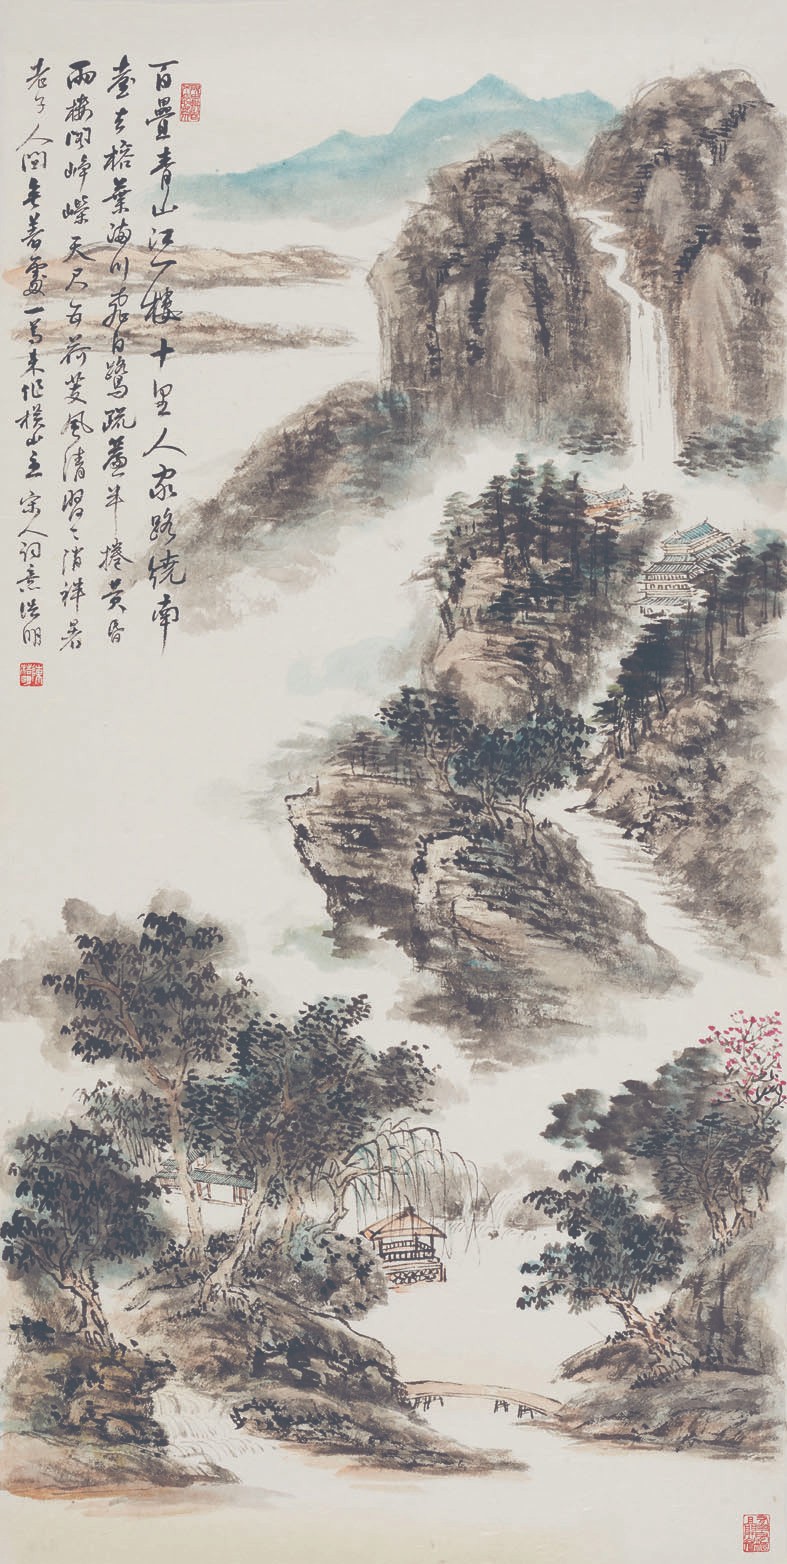 百疊青山江一樓十里人家路繞南
臺去榕葉滿川飛白鷺疏簾半捲黃昏
雨樓閣崢嶸天尺五荷芰風清習〻消祥暑
老子人間無著處一尊來作橫山主 宋人詞意